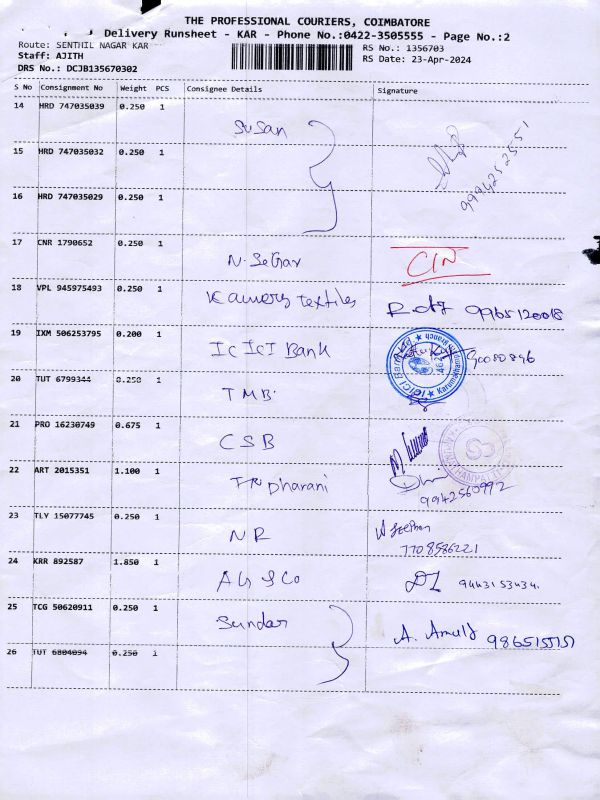 THE PROFESSIONAL COURIERS, COIMBATORE
Delivery Runsheet - KAR - Phone No.:0422-3505555 - Page No.:2
Route: SENTHIL NAGAR KAR RS No.: 1356703
Staff: AJITH RS Date: 23-Apr-2024
DRS No.: DCJB135670302
S No Consignment No Weight PCS Consignee Details Signature
14 HRD 747035039 0.250 1
Susan
9994252551
15 HRD 747035032 0.250 1
16 HRD 747035029 0.250 1
17 CNR 1790652 0.250 1
N. Sekar
18 VPL 945975493 0.250 1
textiles 9965120018
19 IXM 506253795 0.200 1
ICICI Bank
20 TUT 6799344 0.250 1
TMB
21 PRO 16230749 0.675 1
CSB
22 ART 2015351 1.100 1
Dharani
9942560992
23 TLY 15077745 0.250 1
NR
7708586221
24 KRR 892587 1.850 1
9443153434.
25 TCG 50620911 0.250 1
Sundar
A.
26 TUT 6804094 0.250 1